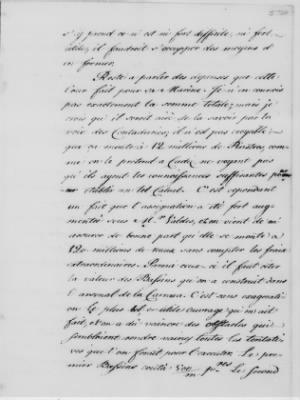 s'y prend ce n'est ni fort difficile, ni fort
il faudroit s'occupper des moyens d'en
former.
Reste a parler des depenses que cette
Cour fait pour sa Marine. Je n'en connois
pas exactement la somme totale, mais je
crois qu'il seroit aisé de la savoir par la
voie des Contaduries, il n'est pas croyable
que ca monte à 12 millions de Piastres com-
me on le pretend a Cadix ne voyant pas
qu'ils ayent les connoissances suffisantes
etablir un tel Calcul. C'est cependant
un fait que l'assignation a été fort aug-
mentée sous Mr Valdés, et on vient de m'
assurer de bonne part qu'elle se monte a
120 millions de reaux sans compter les fraix
extraordinaires. Parmi ceux-ci il faut citer
la valeur des Bassins qu'on a construit dans
l'arsenal de la Carraca. C'est sans exagerati-
on le plus bel ouvrage qu'on ait
fait, et on a du vaincre des obstacles qui
sembloient rendre vaines toutes les tentati-
ves que l'on feroit pour l'executer. Le pre-
mier Bassins coute Le second